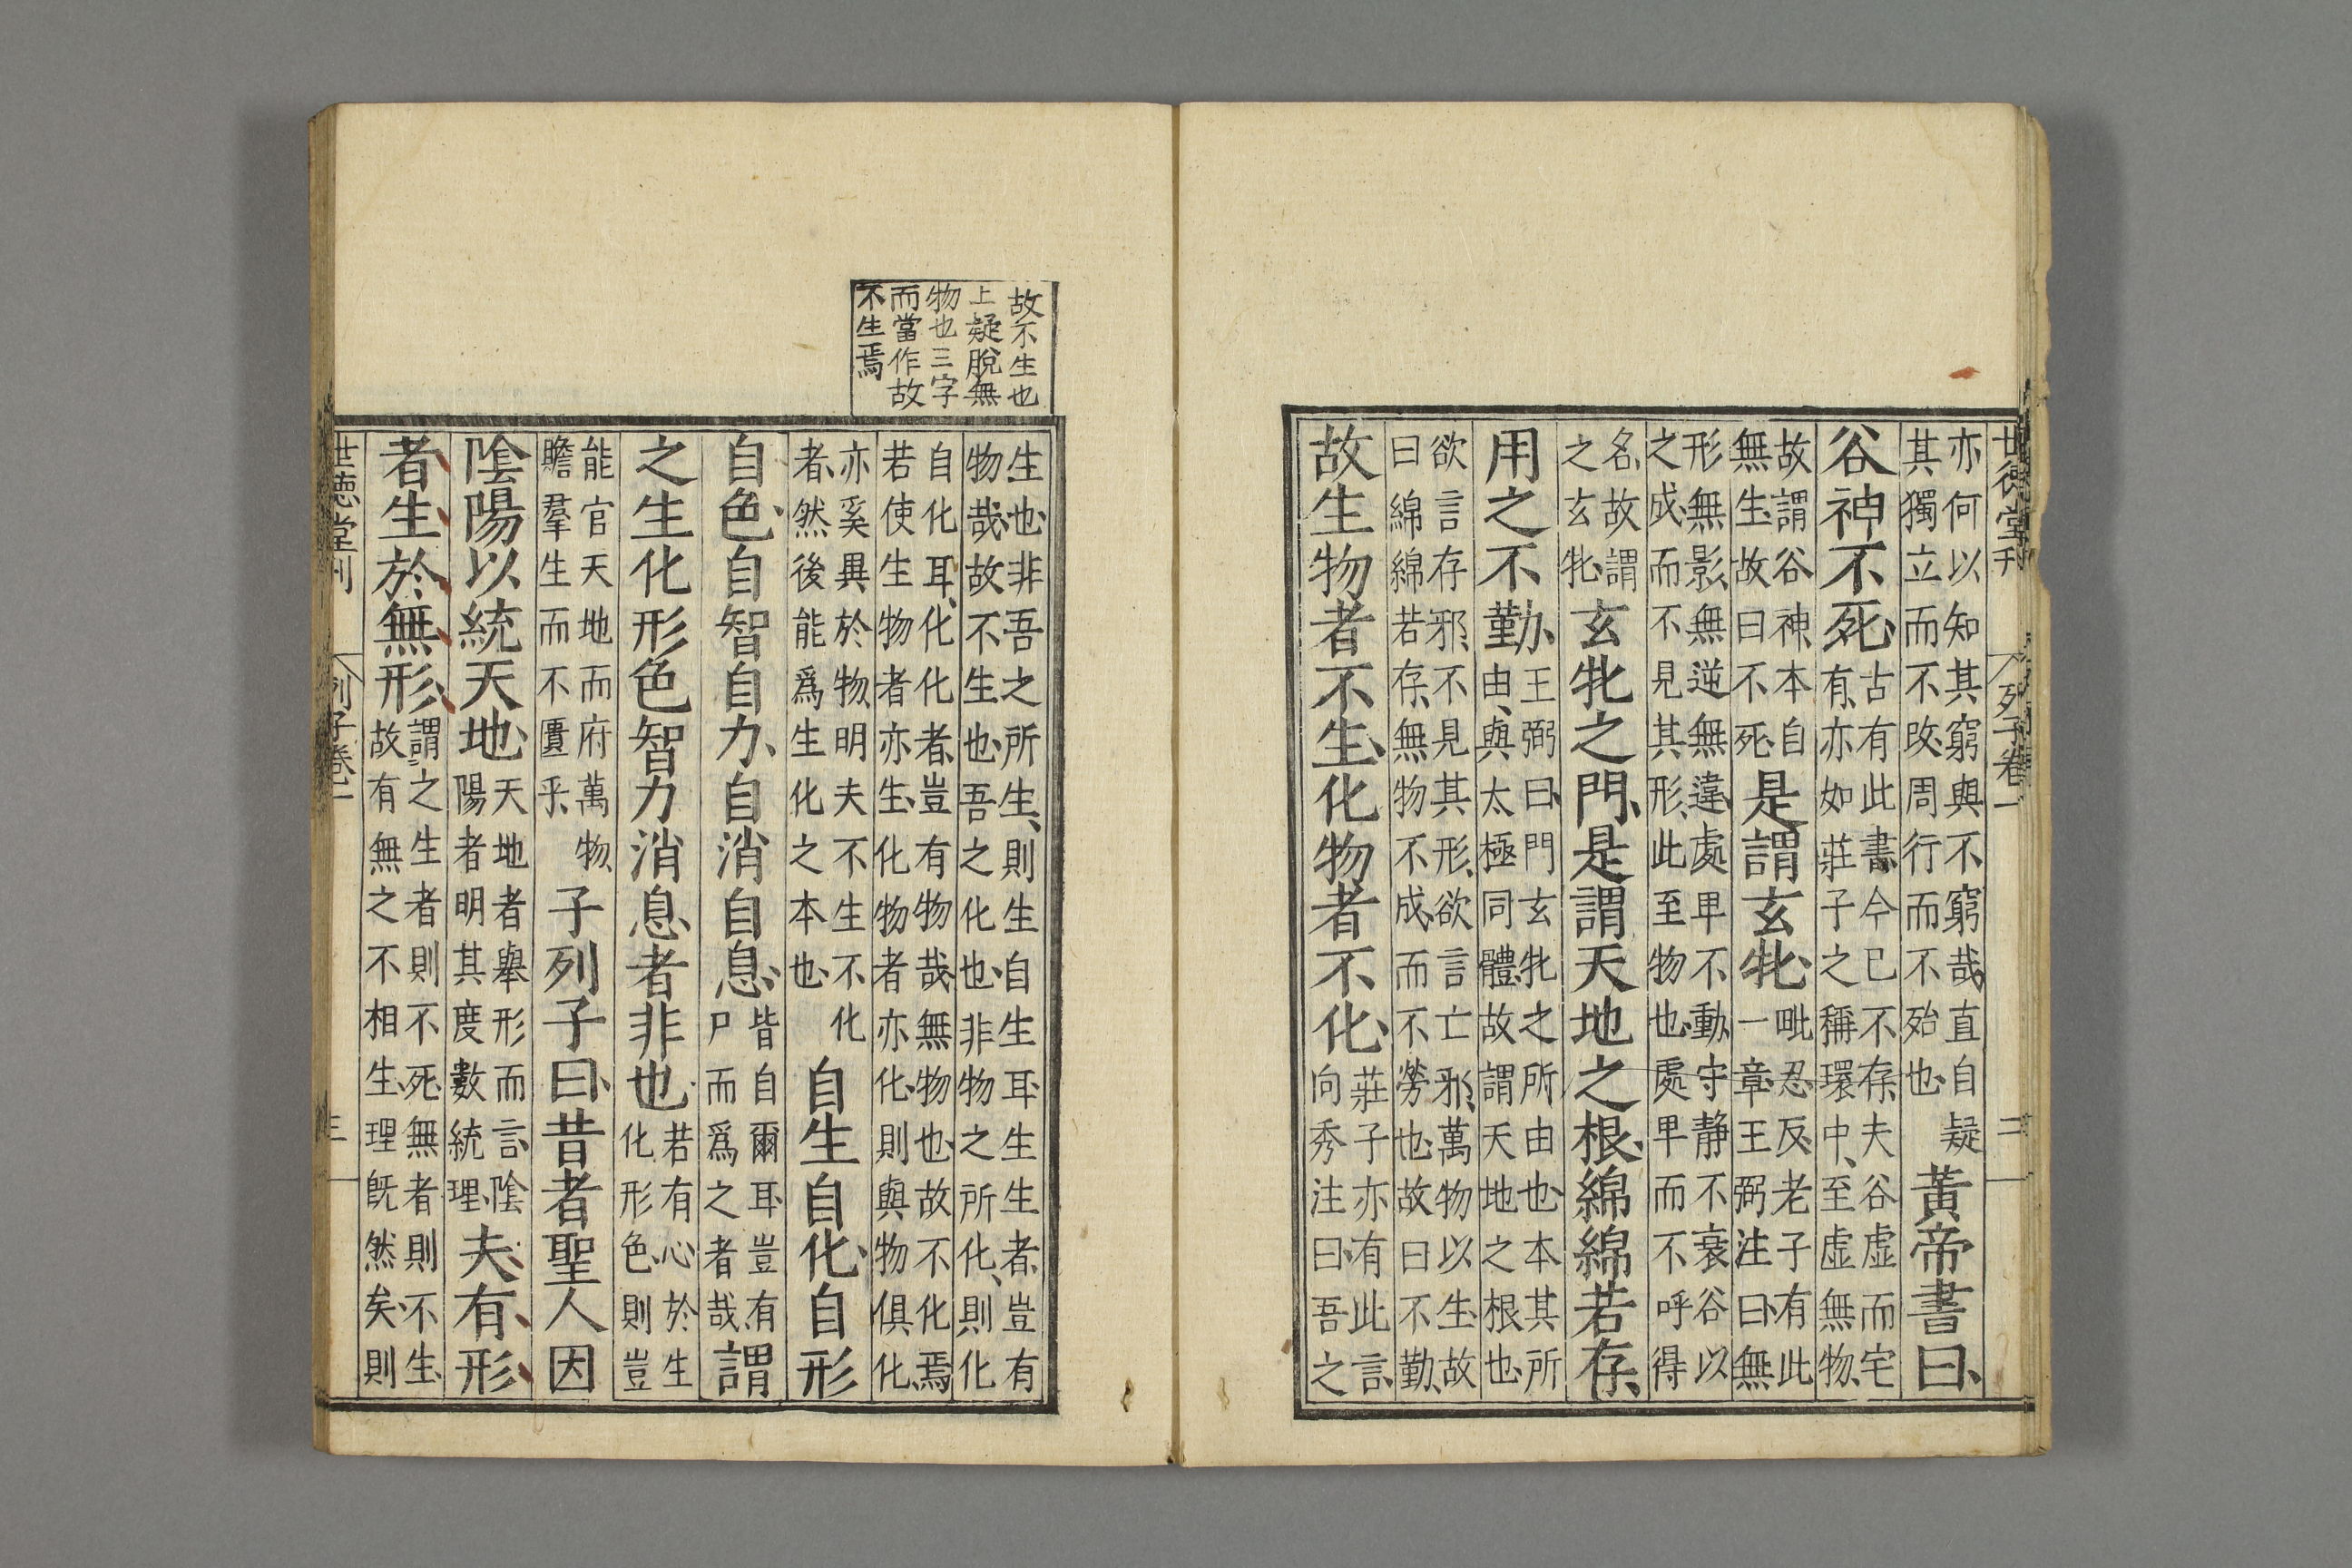 世德堂刊 列子卷一 二
亦何以知其窮與不窮哉、直自疑其獨立而不改、周行而不殆也、黃帝書曰、
谷神不死、古有此書、今已不存、夫谷虛而宅有、亦如莊子之稱環中、至虛無物、
故謂谷神、本自無生、故曰不死、是謂玄牝、毗忍反、老子有此一章、王弼注曰、無
形無影、無逆無違、處卑不動、守静不衰、谷以之成、而不見其形、此至物也、處卑而不呼得
名、故謂之玄牝、玄牝之門、是謂天地之根、綿綿若存、
用之不勤、王弼曰、門玄牝之所由也、本其所由、與太極同體、故謂天地之根也、
欲言存邪、不見其形、欲言亡邪、萬物以生、故曰綿綿若存、無物不成、而不勞也、故曰不勤、
故生物者不生、化物者不化、莊子亦有此言、向秀注曰、吾之
故不生也
上疑脫無
物也三字
而當作故
不生焉
生也、非吾之所生、則生自生耳、生生者、豈有物哉、故不生也、吾之化也、非物之所化、則化
自化耳、化化者、豈有物哉、無物也、故不化焉、若使生物者亦生、化物者亦化、則與物俱化、
亦奚異於物、明夫不生不化者、然後能爲生化之本也、自生自化、自形
自色、自智自力、自消自息、皆自爾耳、豈有尸而爲之者哉謂
之生化形色智力消息、者非也、若有心於生化形色、則豈
能官天地而府萬物、贍羣生而不匱乎、子列子曰、昔者聖人因
陰陽以統天地、天地者、舉形而言、陰陽者、明其度數統理、夫、有、形、
者、生、於、無、形、謂之生者、則不死、無者則不生、故有無之不相生、理旣然矣、則
世德堂刊 列子卷一 三